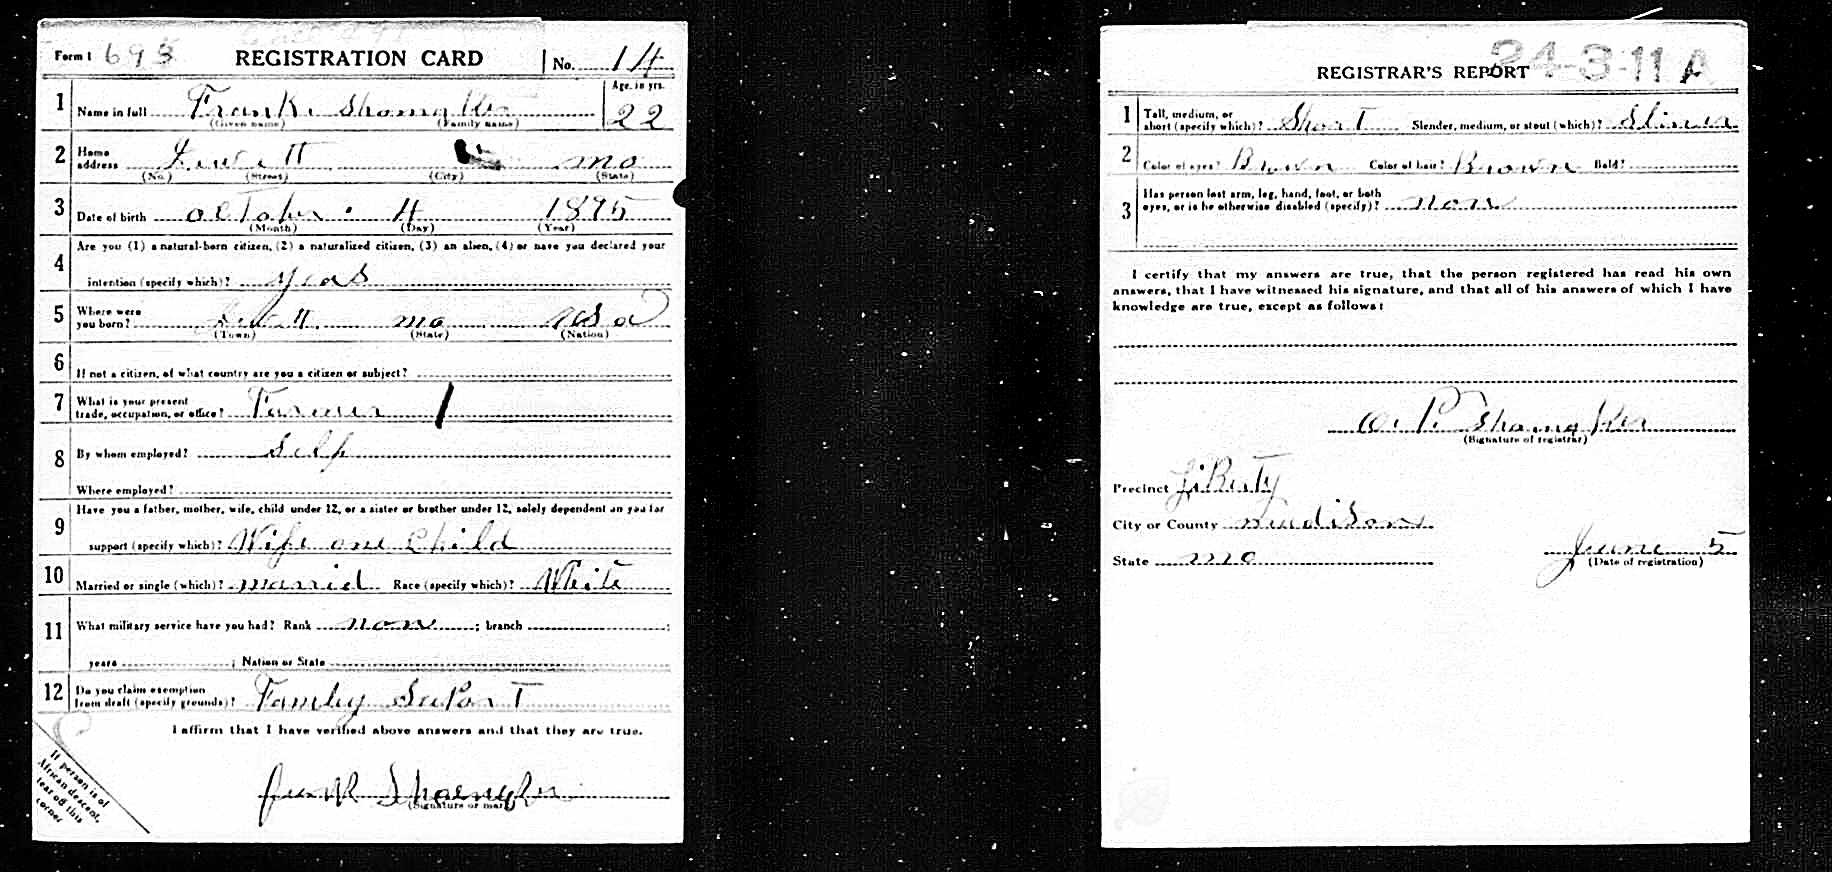 Form 1 693 REGISTRATION CARD No. 14
Age, in yrs.
1 Name in full Frank 22
(Given name) (Family name)
2 Home address mo
(No.) (Street) (City) (State)
3 Date of birth 4 1895
(Month) (Day) (Year)
4 Are you (1) a natural-born citizen, (2) a naturalized citizen, (3) an alien, (4) or have you declared your
intention (specify which)? yeas
5 Where were you born? mo usa
(Town) (State) (Nation)
6 If not a citizen, of what country are you a citizen or subject?
7 What is your present
trade, occupation, or office? Farmer
8 By whom employed? Self
Where employed?
9 Have you a father, mother, wife, child under 12, or a sister or brother under 12, solely dependent on you for
support (specify which)? Wife one Child
10 Married or single (which)? married Race (specify which)? White
11 What military service have you had? Rank non ; branch ;
years ; Nation or State
12 Do you claim exemption
from draft (specify grounds)? Famley SuPorT
I affirm that I have verified above answers and that they are true.
(Signature or mark)
If person is of
African descent,
tear off this
corner
REGISTRAR'S REPORT 24-3-11 A
1 Tall, medium, or
short (specify which)? ShorT Slender, medium, or stout (which)?
2 Color of eyes? Brown Color of hair? Brown Bald?
3 Has person lost arm, leg, hand, foot, or both
eyes, or is he otherwise disabled (specify)? non
I certify that my answers are true, that the person registered has read his own
answers, that I have witnessed his signature, and that all of his answers of which I have
knowledge are true, except as follows:
(Signature of registrar)
Precinct LiBerty
City or County madison
State mo June 5
(Date of registration)